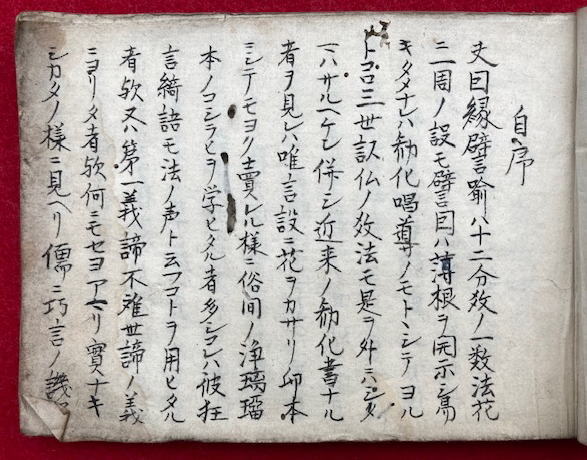 自序
夫因縁譬喩ハ十二分敎ノ一数法花
二周ノ説モ譬因ハ薄根ヲ開示シ易
キタメナレハ勧化唱導ノモトヽシテヨル
トコロ三世諸仏ノ敎法モ是ヲ外ニハシタ
ハサルヘケレ併シ近来ノ勧化書ナル
者ヲ見レハ唯言説ニ花ヲカサリ印本
シテモヨク賣レル様ニ俗間ノ浄璃瑠
本ノコシラヒヲ学ヒタル者多シコレハ彼狂
言綺語モ法ノ声ト云フコトヲ用ヒタル
者欤又ハ第一義諦不離世諦ノ義
ニヨリタ者欤何ニモセヨアマリ實ナキ
シカタノ様ニ見ヘリ儒ニ巧言ノ譏